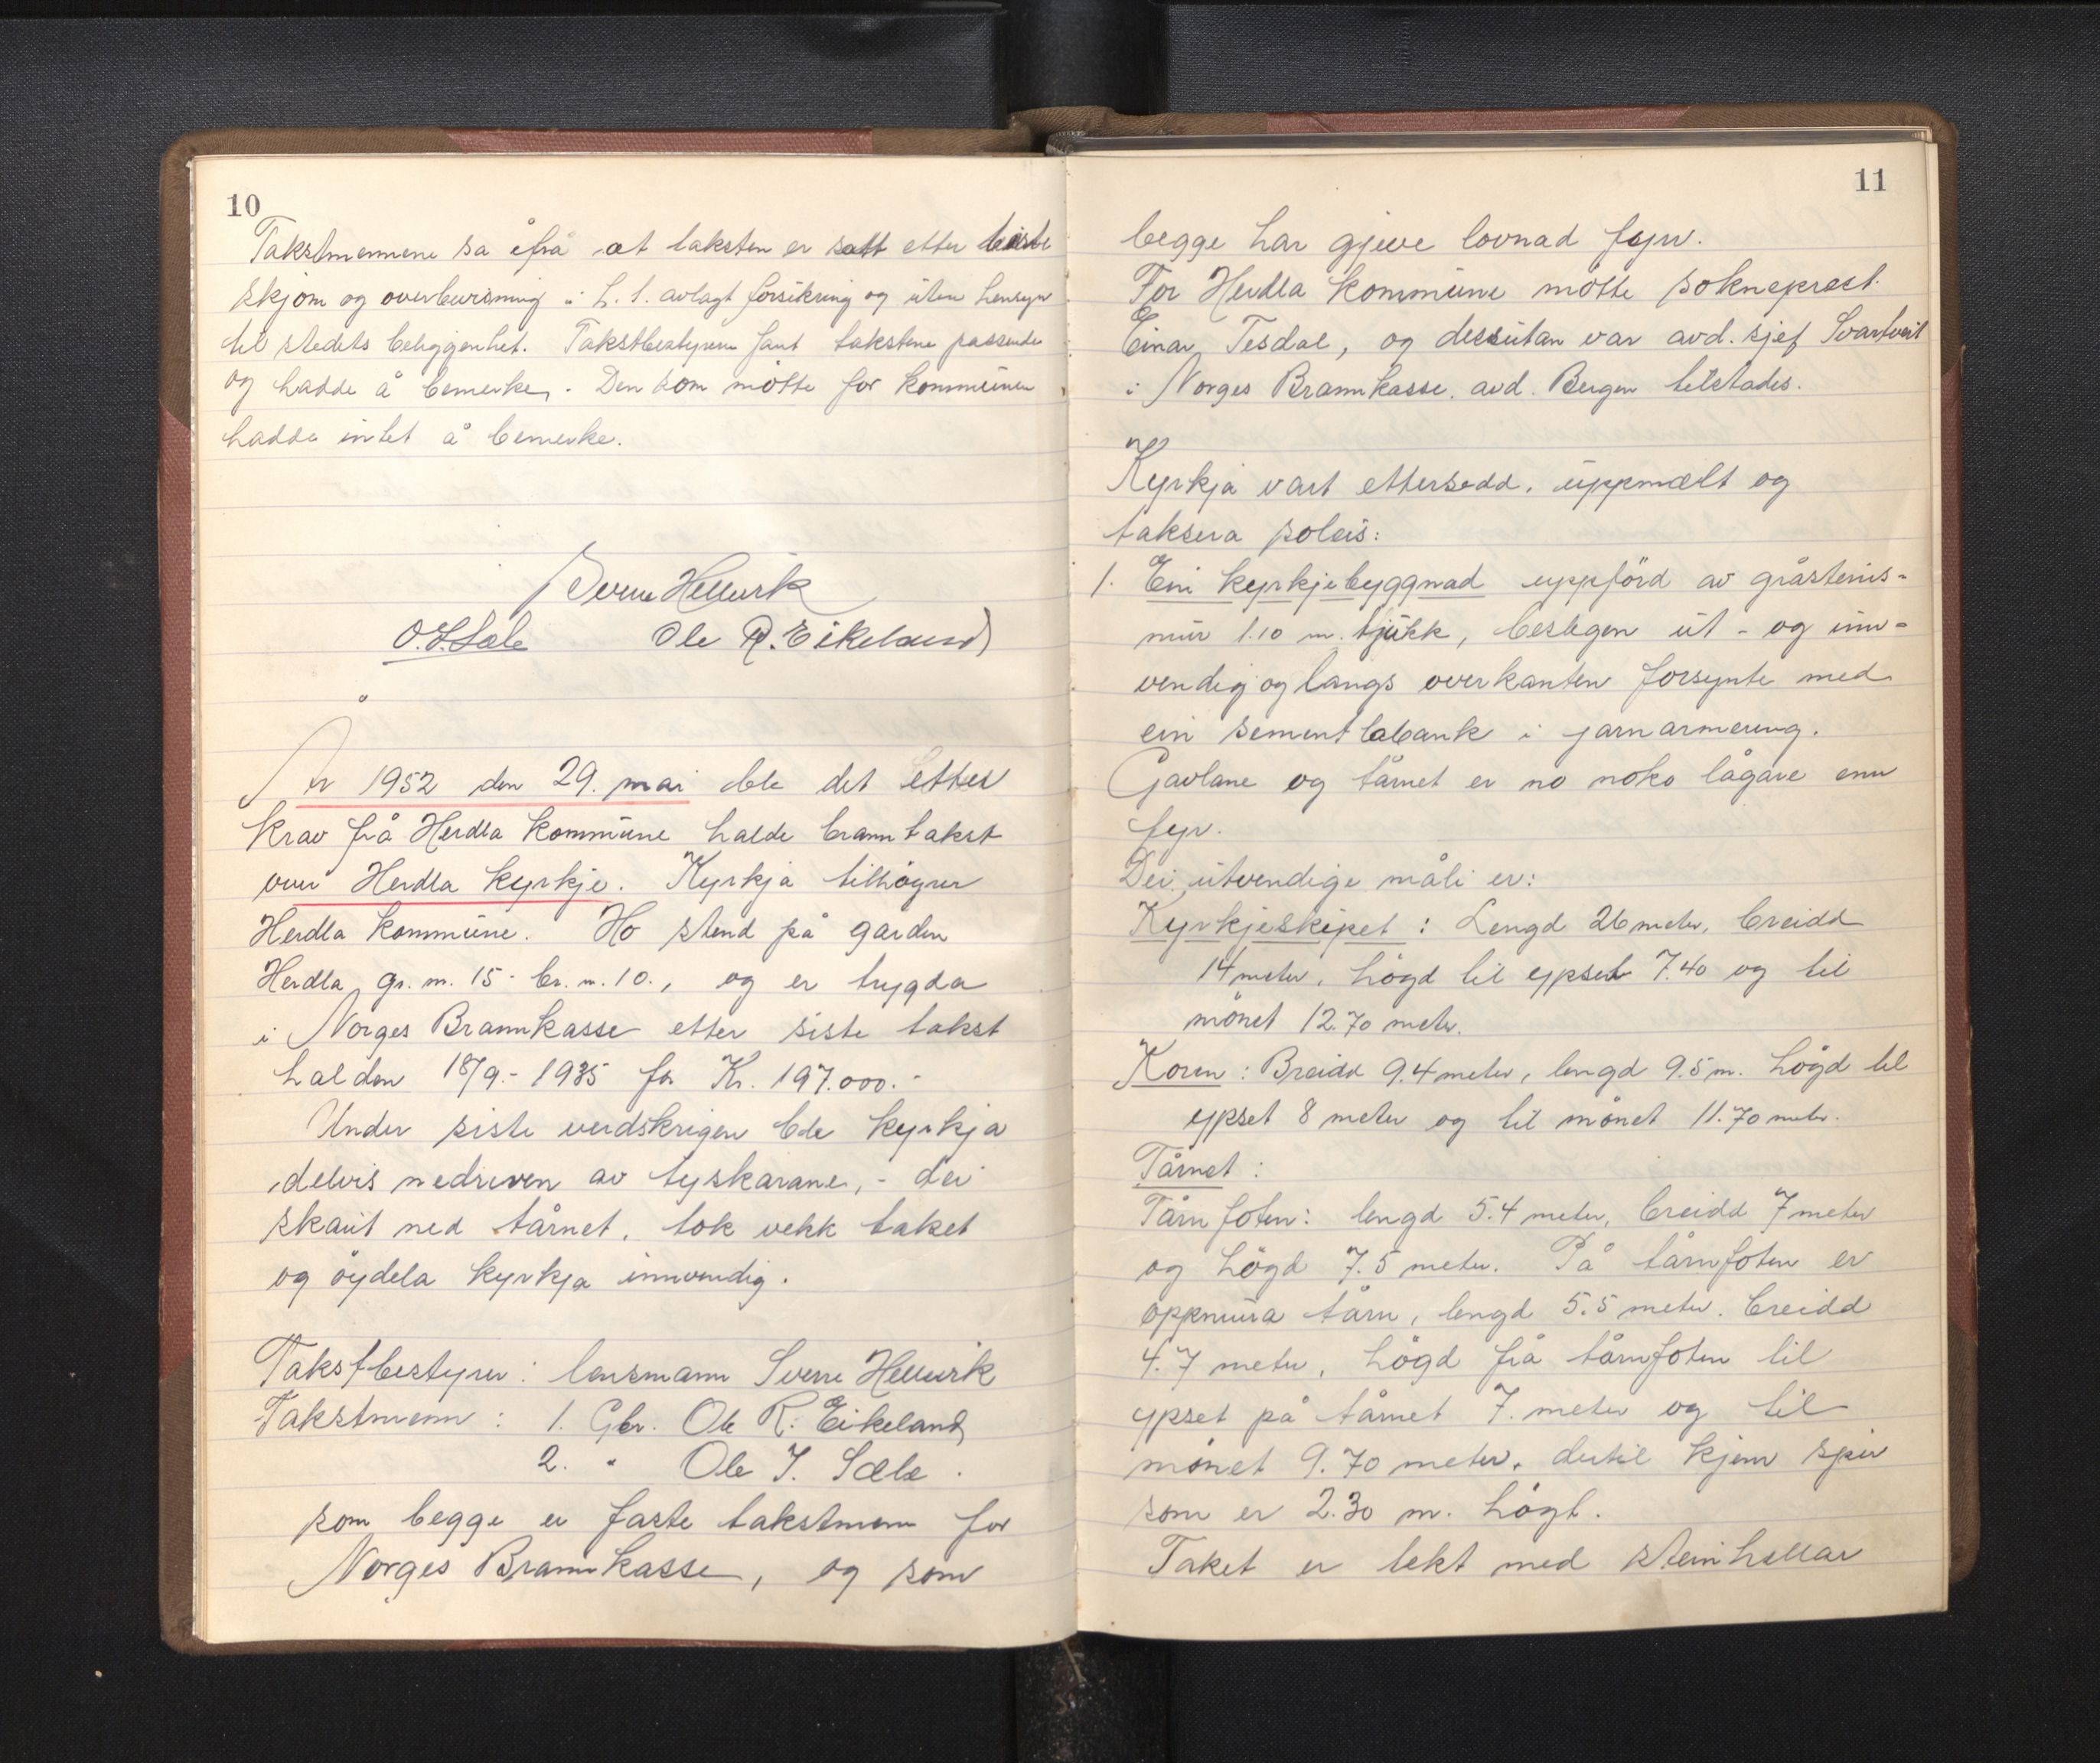 10
Takstmennene sa ifrå at taksten er satt etter beiste
skjøn og overbevisning i h. t. avlagt forsikring og uten hensyn
til stedets beliggenhet. Takstbestyreren fant takstene passende
og hadde å bemerke. Den som møtte for kommunen
hadde intet å bemerke.
Sverre Hellvik
O. J. Sæle Ole R. Eikeland
År 1952 den 29. mai ble det etter
krav frå Herdla kommune halde branntakst
over Herdla kyrkje. Kyrkja tilhøyrer
Herdla kommune. Ho stend på garden
Herdla gr. nr. 15 - br. nr. 10., og er trygda
i Norges Brannkasse etter siste takst
halden 18/9 - 1935 for Kr. 197.000.-
Under siste verdskrigen ble kyrkja
delvis nedreven av tyskarane, - dei
skaut ned tårnet, tok vekk taket
og øydela kyrkja innvendig.
Takstbestyrer: lensmann Sverre Hellvik
Takstmenn: 1. Gbr. Ole R. Eikeland
2. " Ole J. Sæle.
som begge er faste takstmenn for
Norges Brannkasse, og som
11
begge har gjeve lovnad fyrr.
For Herdla kommune møtte sokneprest
Einar Tesdal, og dessutan var avd. sjef Svartveit
i Norges Brannkasse. avd. Bergen tilstades.
Kyrkja vart ettersedd, uppmælt og
taksera soleis:
1. Ein kyrkjebyggnad uppförd av gråsteins-
mur 1.10 m. tjukk, beslegen ut - og inn-
vendig og langs overkanten forsynte med
ein sement labank i jarnarmering.
Gavlane og tårnet er no noko lågare enn
fyr.
Dei utvendige måli er:
Kyrkjeskipet: Lengd 26 meter, breidd
14 meter, högd til ypset 7.40 og til
mönet 12.70 meter.
Koren: Breidd 9.4 meter, lengd 9.5 m. högd til
ypset 8 meter og til mönet 11.70 meter.
Tårnet:
Tårnfoten: lengd 5.4 meter, breidd 7 meter
og högd 7.5 meter. På tårnfoten er
oppmura tårn, lengd 5.5 meter. breidd
4.7 meter, högd frå tårnfoten til
ypset på tårnet 7. meter og til
mönet 9.70 meter, dertil kjem spir
som er 2.30 m. högt.
Taket er tekt med steinhellar